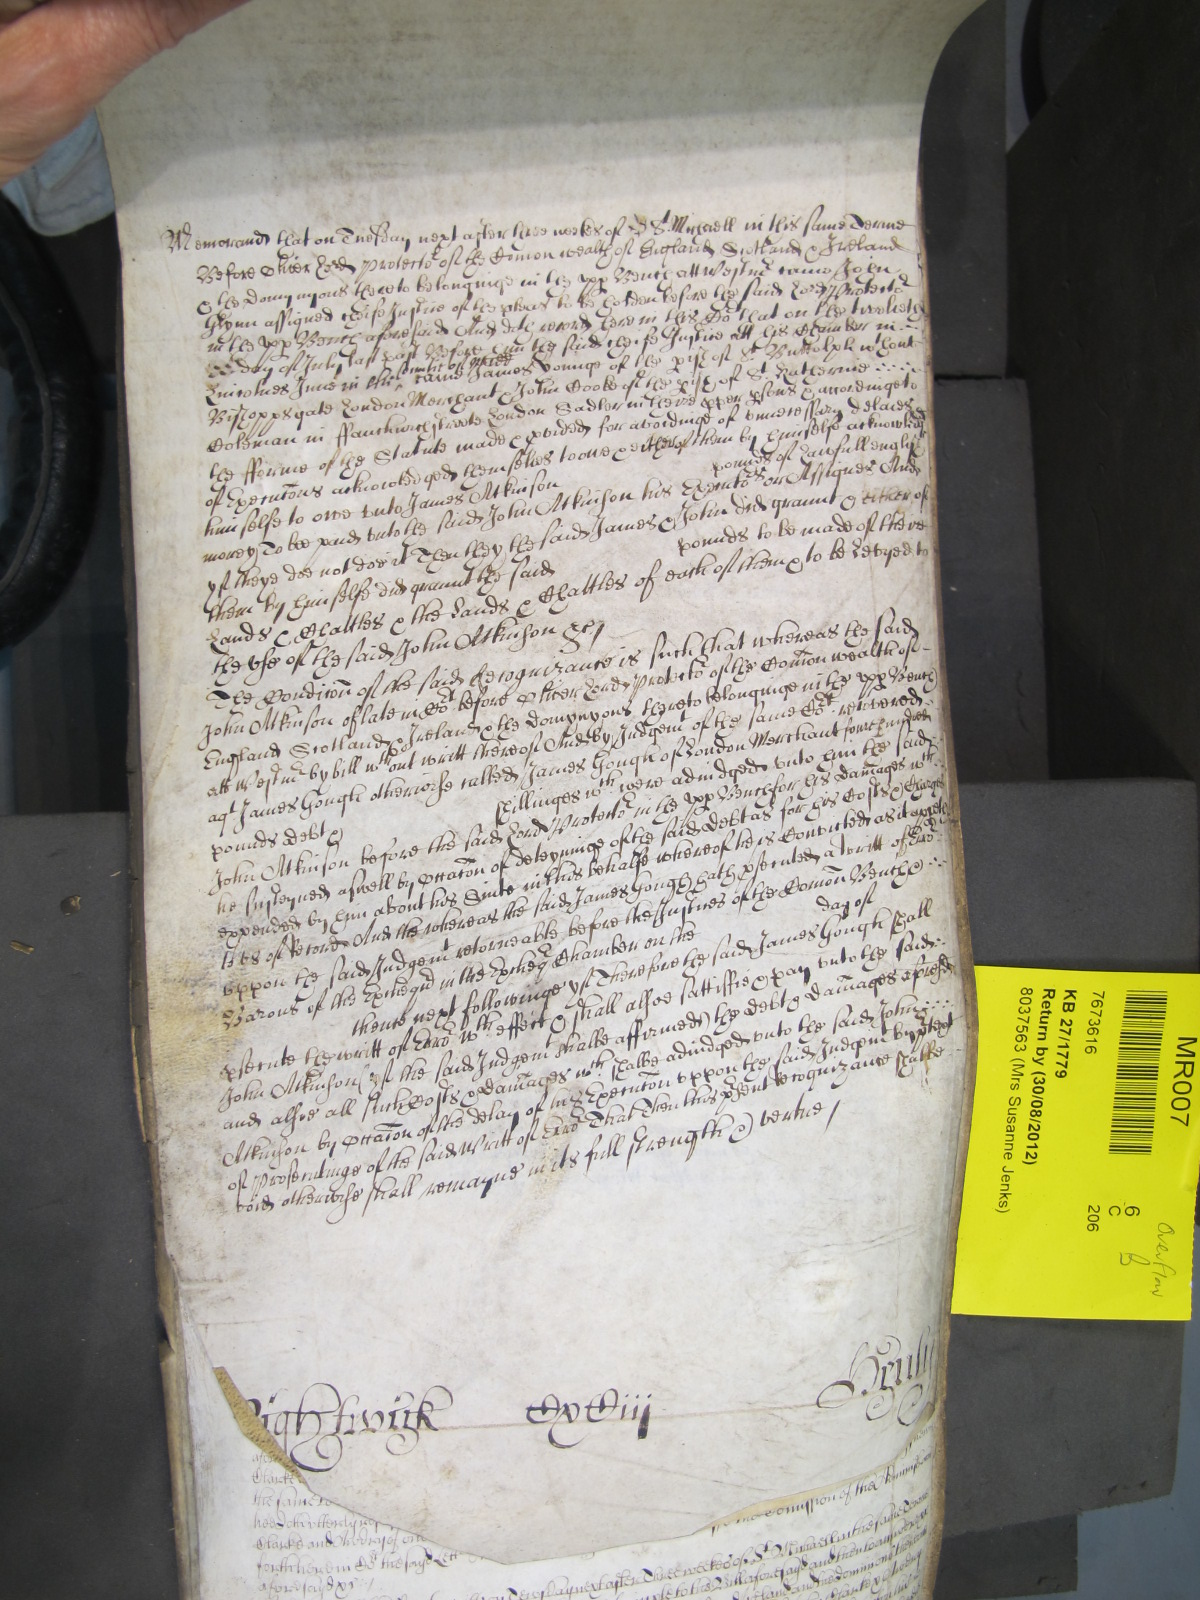 Memorand that on Tuesday next after three weekes of St Michaell in this same Terme
Before Oliver Lord Protector of the Comon wealth of England Scotland & Ireland
& the domynyons thereto belonginge in the upp Bench att Westmr came John
Glynn assigned chiefe Justice of the pleas to be holden before the said Lord Protector
in the upp Bench aforesaid And doth record here in this Cot that on the twelveth
day of July last past Before him the said chiefe Justice att his Chamber in
Lincolnes Inne in the came James Younge of the pish of St Buttolph without
Bishoppsgate London Merchant & John Cooke of the pish of St Katherine
Coleman in ffanchurch streete London Sadler in there pper psons & accordinge to
the fforme of the Statute made & pvided for avoidinge of unnecessary delaies
of Executons acknowledged themselves to owe & either of them by himselfe acknowledged
himselfe to owe unto James Atkinson pounds of lawfull english
money To bee paid unto the said John Atkinson his Executors or Assignes And
yf theye doe not doe it Then they the said James & John did graunt & either of
them by himselfe did graunt the said pounds to be made of there
Lands & Chattles & the Lands & Chattles of each of them & to be levyed to
the use of the said John Atkinson &c
The Condicon of the said Recognizance is such that whereas the said
John Atkinson of late in Cot before Oliver Lord Protector of the Comon wealth of
England Scotland & Ireland & the domynyons thereto belonginge in the upp Bench
att Westmr by bill without writt thereof And by Judgemt of the same Cot recovered
agt James Gough otherwise called James Gough of London Merchant foure hundred
pounds debt & shillinges wch were adiudged unto him the said
John Atkinson before the said Lord Protector in the upp Bench for his damages wch
he susteyned aswell by occacon of deteyninge of the said debt as for his Costs & Charges
expended by him about his Suite in this behalfe whereof he is Convicted as it appeth
to us of Record And the whereas the said James Gough hath psecuted a writt of Error
uppon the said Judgemt retorneable before the Justices of the Comon Bench &
Barons of the Exchequer in the Excheqr Chamber on the day of
thence next followinge yf Therefore the said James Gough shall
psecute the writt of Error wth effect & shall alsoe sattisfie & pay unto the said
John Atkinson (yf the said Judgemt shalbe affirmed) the debt & damages aforesd
and alsoe all such Costs & damages wch shalbe adiudged unto the said John
Atkinson by occacon of the delay of his Execucon uppon the said Judgemt by ptext
of prosecutinge of the said Writt of Error That then this psent Recognizance shalbe
void otherwise shall remayne in its full strength & vertue
ightwick CxCiij Henly
MR007
7673616
KB 27/1779
Return by (30/08/2012)
8037563 (Mrs Susanne Jenks)
6
C
206
Overflow